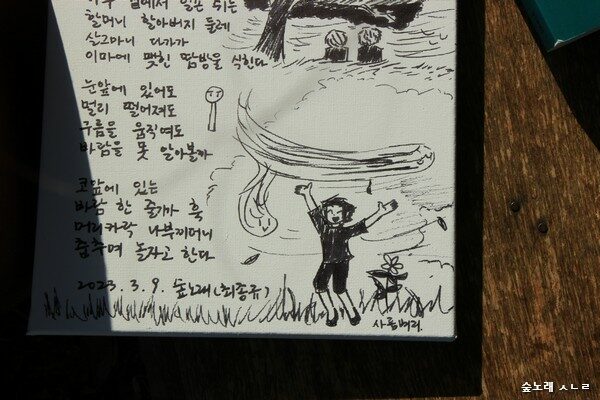 곁에서 일손 쉬는
할머니 할아버지 둘레
살그머니 다가가
이마에 맺힌 땀방울 식힌다
눈앞에 있어도
멀리 떨어져도
구름을 움직여도
바람을 못 알아볼까
코앞에 있는
바람 한 줄기가 훅
머리카락 나부끼더니
춤추며 놀자고 한다
2023. 3. 9. 숲노래(최종규)
사름벼리.
숲노래 ㅅㄴㄹ